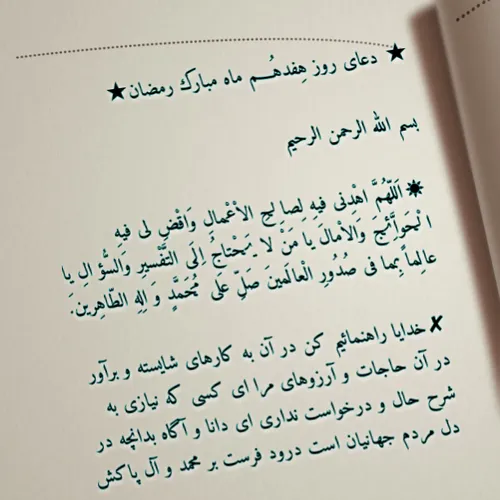 ★ دعای روز هِفدهُـــم ماه مبارك رمضان ★
بسم الله الرحمن الرحیم
✷ اَللّهُمَّ اهْدِنی فیهِ لِصالِحِ الاْعْمالِ وَاقْضِ لی فیهِ
الْحَوآئِجَ وَالاْمالَ یا مَنْ لا یَحْتاجُ اِلَی التَّفْسیرِ وَالسُّؤ الِ یا
عالِماً بِما فی صُدُورِ الْعالَمینَ صَلِّ عَلی مُحَمَّدٍ وَ الِهِ الطّاهِرینَ.
✘ خدایا راهنمائیم کن در آن به کارهای شایسته و برآور
در آن حاجات و آرزوهای مرا ای کسی که نیازی به
شرح حال و درخواست نداری ای دانا و آگاه بدانچه در
دل مردم جهانیان است درود فرست بر محمد و آل پاکش